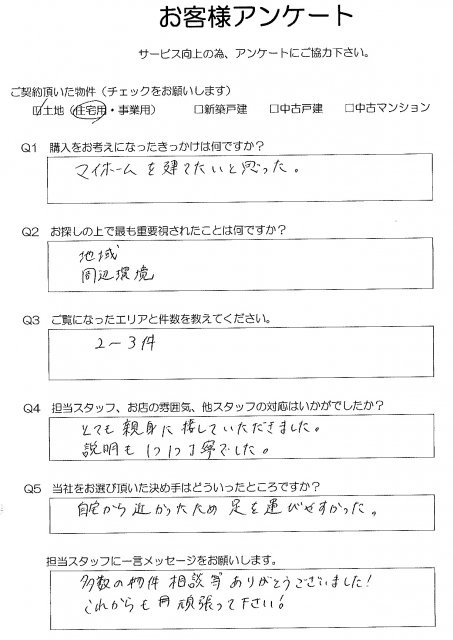 お客様アンケート
サービス向上の為、アンケートにご協力下さい。
ご契約頂いた物件（チェックをお願いします）
☑土地（住宅用・事業用） □新築戸建 □中古戸建 □中古マンション
Q1 購入をお考えになったきっかけは何ですか？
マイホームを建てたいと思った。
Q2 お探しの上で最も重要視されたことは何ですか？
地域
周辺環境
Q3 ご覧になったエリアと件数を教えてください。
2〜3件
Q4 担当スタッフ、お店の雰囲気、他スタッフの対応はいかがでしたか？
とても親身に接していただきました。
説明も1つ1つ丁寧でした。
Q5 当社をお選び頂いた決め手はどういったところですか？
自宅から近かったため足を運びやすかった。
担当スタッフに一言メッセージをお願いします。
多数の物件相談等ありがとうございました！
これからも頑張って下さい！